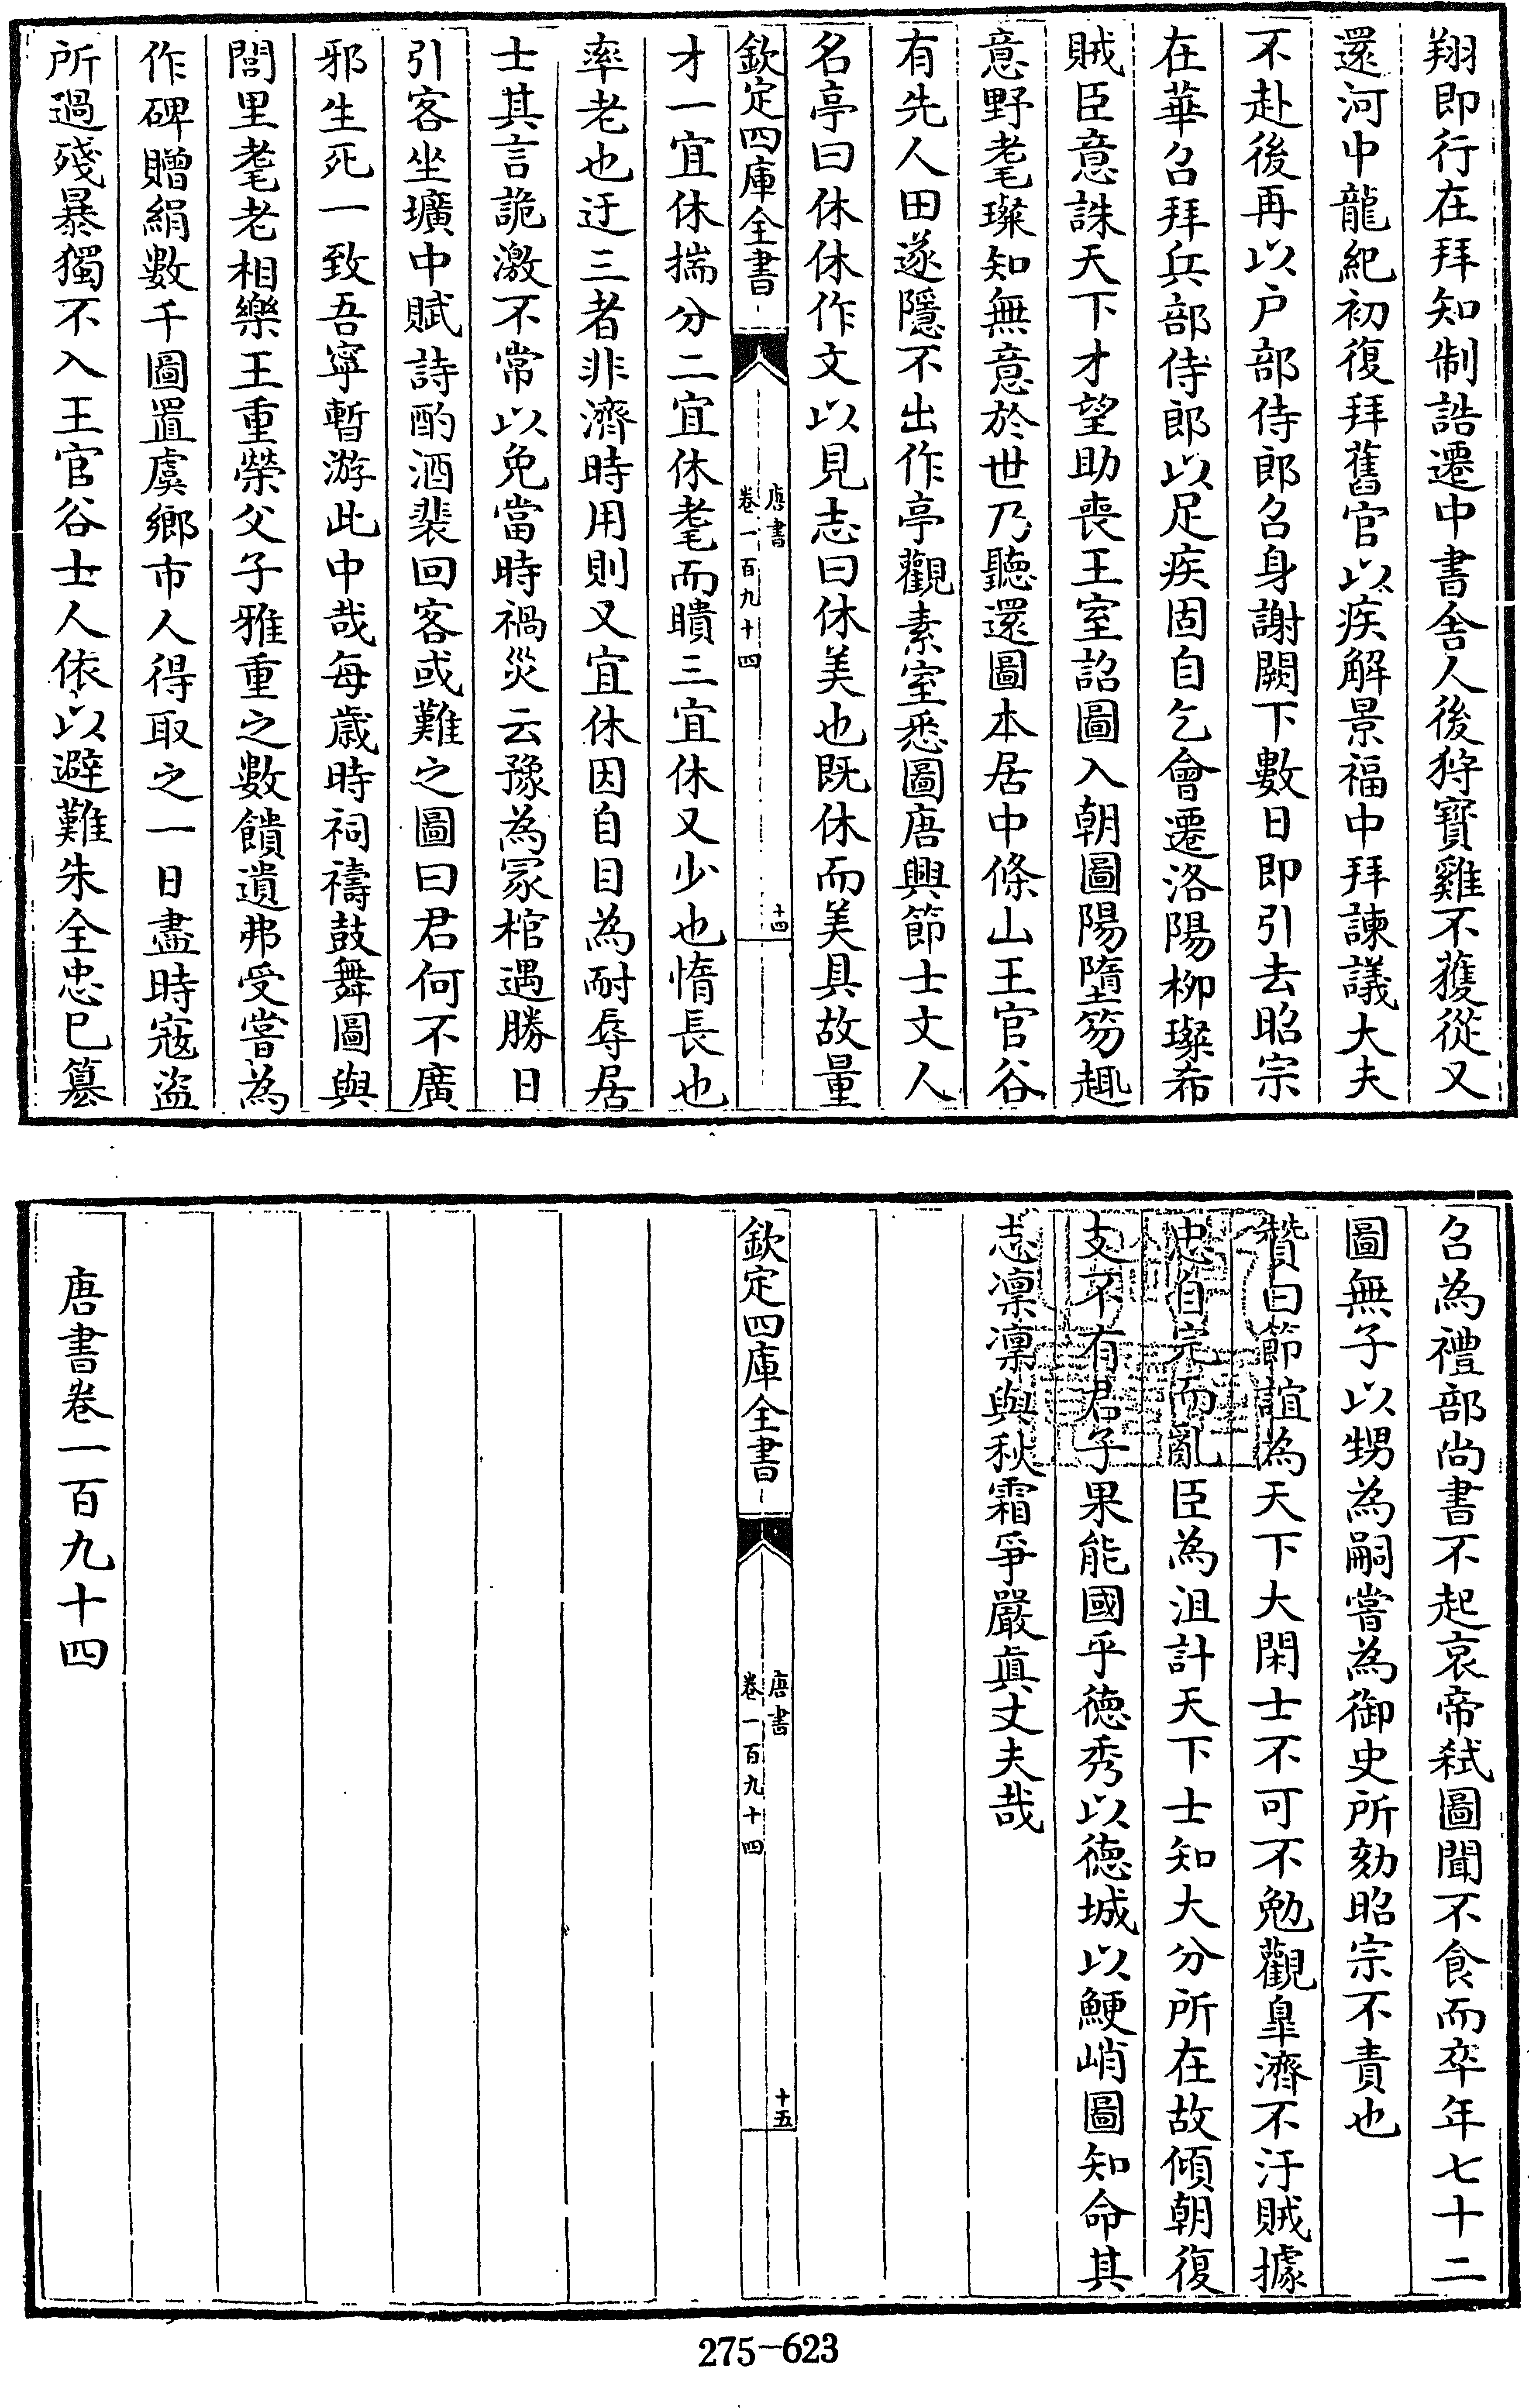 翔即行在拜知制誥遷中書舍人後狩寳雞不獲從又
還河中龍紀初復拜舊官以疾解景福中拜諫議大夫
不赴後再以户部侍郎召身謝闕下數日即引去昭宗
在華召拜兵部侍郎以足疾固自乞會遷洛陽柳璨希
賊臣意誅天下才望助喪王室詔圖入朝圖陽墮笏趣
意野耄璨知無意於世乃聽還圖本居中條山王官谷
有先人田遂隱不出作亭觀素室悉圖唐興節士文人
名亭曰休休作文以見志曰休美也既休而美具故量
欽定四庫全書
唐書
卷一百九十四
十四
才一宜休揣分二宜休耄而聵三宜休又少也惰長也
率老也迂三者非濟時用則又宜休因自目為耐辱居
士其言詭激不常以免當時禍災云豫為冡棺遇勝日
引客坐壙中賦詩酌酒裴回客或難之圖曰君何不廣
邪生死一致吾寧暫游此中哉每歲時祠禱鼓舞圖與
閭里耄老相樂王重榮父子雅重之數饋遺弗受嘗為
作碑贈絹數千圖置虞鄉市人得取之一日盡時寇盜
所過殘暴獨不入王官谷士人依以避難朱全忠已簒
召為禮部尚書不起哀帝弑圖聞不食而卒年七十二
圖無子以甥為嗣嘗為御史所劾昭宗不責也
贊曰節誼為天下大閑士不可不勉觀臯濟不汙賊據
忠自完而亂臣為沮計天下士知大分所在故傾朝復
支不有君子果能國乎德秀以德城以鯁峭圖知命其
志凛凛與秋霜爭嚴真丈夫哉
欽定四庫全書
唐書
卷一百九十四
十五
唐書卷一百九十四
275-623